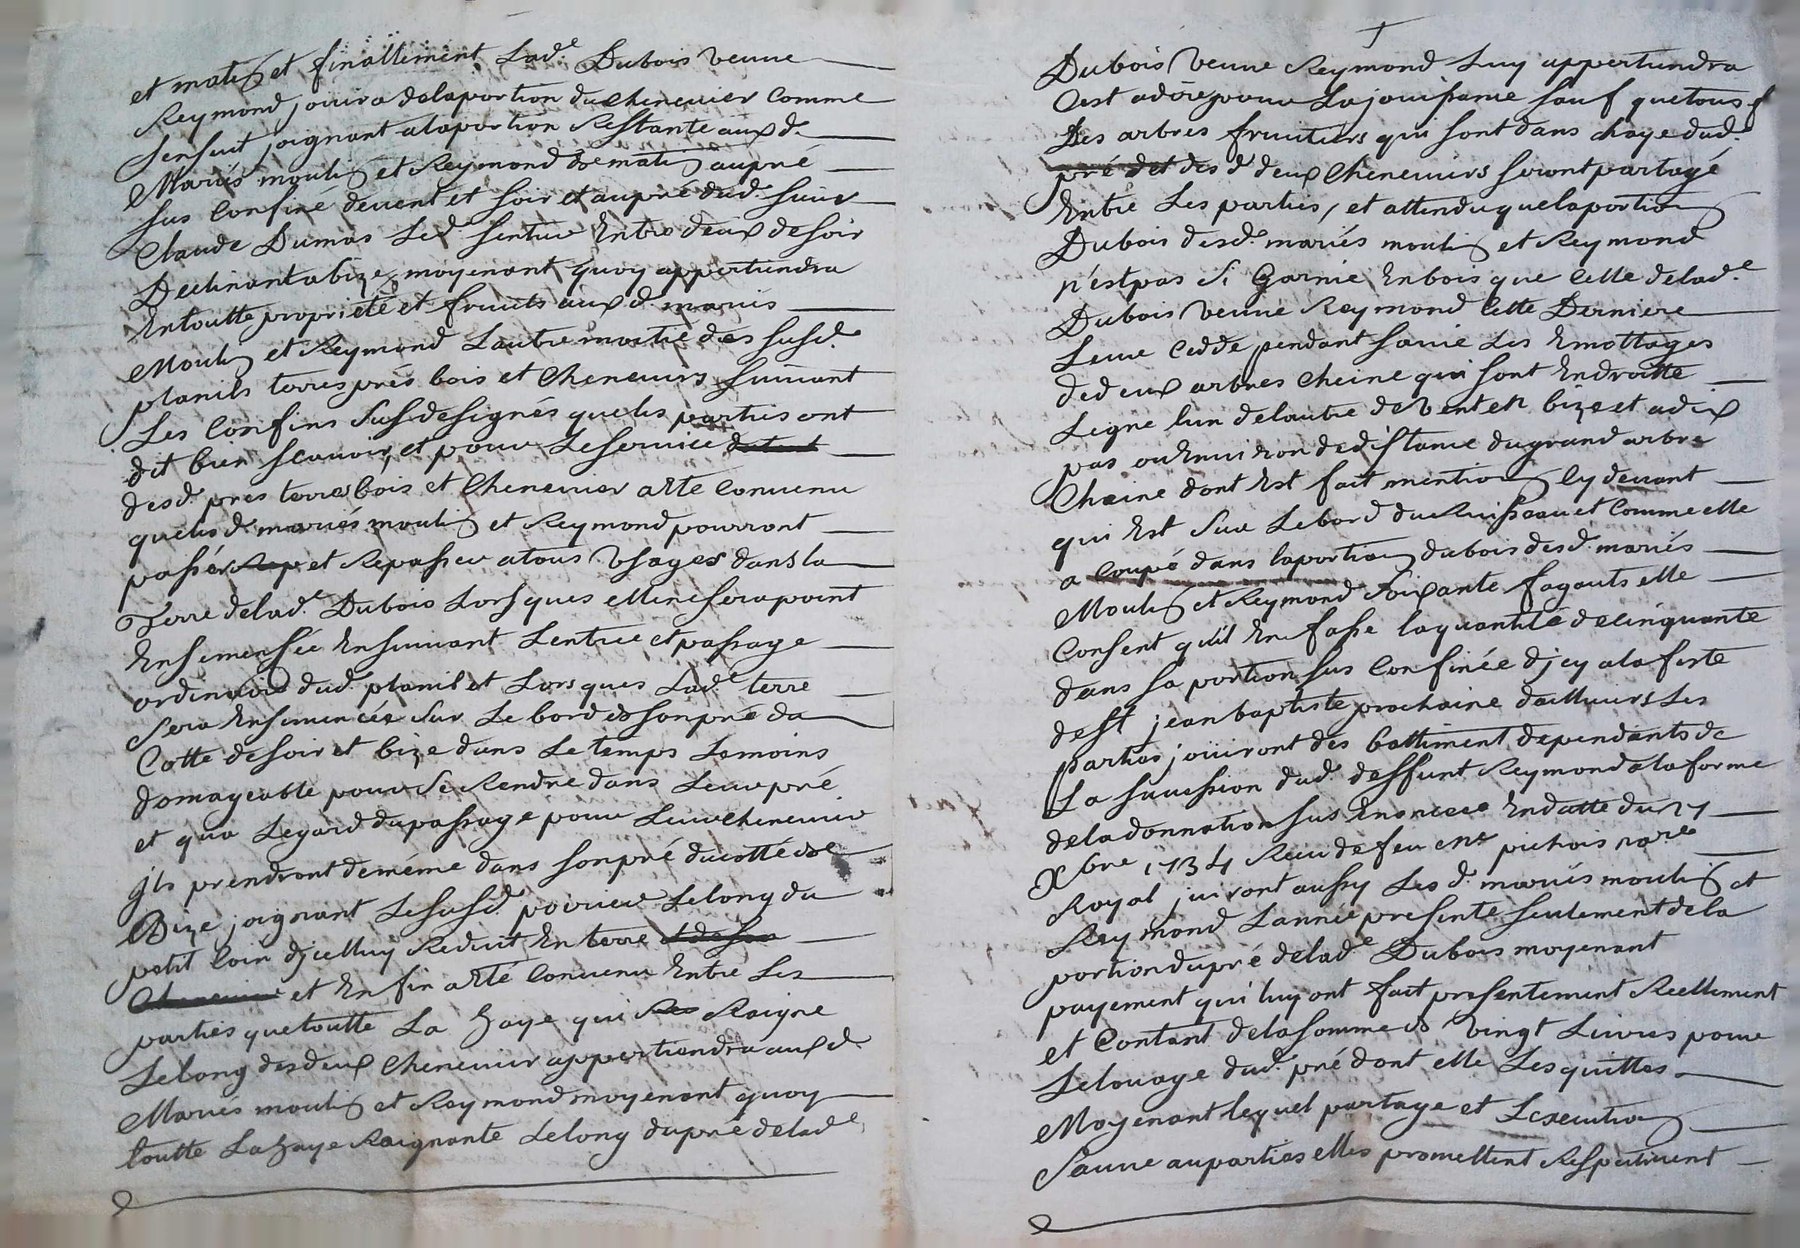 et matin et finallement Lad.e Dubois veuve
Reymond jouira delaportion du chenevier comme
sensuit joignant alaportion Restante auxd.
Mariés moulin et Reymond de matin aupré
sus Confiné devent et soir et aupré dud. sieur
Claude Dumas Led. sentier Entre deux desoir
Declinant abize, moyenant quoy appertiendra
Entoutte proprieté et fruits aux d. mariés
Moulin et Reymond Lautre moitié des susd.
planils terres prés bois et Cheneviers suivant
Les Confins susdesignés quelis parties ont
dit bien scavoir, et pour Leservice
desd. prés terres bois et Chenevier aEté Convenu
quelisd. mariés moulin et Reymond pourront
passér et Repasser atous Usages dans la
Terre delad.e Dubois Lorsques elle ne sera point
Ensemensée Ensuivant Lentrée et passage
ordinaire dud. planil et Lorsques Lad.e terre
sera Ensemencée sur Le bord de son pré du
Cotte desoir et bize dans Le temps Lemoins
domageable pour se Rendre dans Leur pré
et qua Legard dupassage pour Leur chenevier
jls prendront demême dans sonpré ducotté de
Bize joignant Lesusd. Lelong du
petit Coin djcelluy Reduit En terre
et Enfin aEté Convenu Entre Les
parties quetoutte La haye qui Raigne
Lelong desdeux Chenevier appertiendra aux d.
Mariés moulin et Reymond moyenant quoy
toutte La haye Raignante Lelong dupré delad.e
Dubois veuve Reymond Luy appertiendra
Cest adire pour La jouissance sauf que tous
Les arbres fruitiers qui sont dans Lhaye dud.
pré et desd. deux Cheneviers seront partagé
Entre Les parties, et attendu quelaportion
Dubois desd. mariés moulin et Reymond
n'est pas si Garnie En bois que Celle delad.e
Dubois veuve Reymond Cette Derniere
Leur Cedde pendant sa vie Les Emottages
dedeux arbres Cheine qui sont Endroitte
Ligne lun delautre devent en bize et adix
pas ou Environ dedistance dugrand arbre
Cheine dont Est fait mention Cy devant
qui Est sur Le bord du Ruisseau et Comme elle
a Coupé dans laportion dubois desd. mariés
Moulin et Reymond soixante fagauts elle
Consent qu'il En fasse laquantité de cinquante
dans sa portion sus Confinée djcy alafeste
de st jean baptiste prochaine dailleurs Les
parties jouiront des battiment dependants de
La succession dud. deffunt Reymond alaforme
deladonnation sus Enoncée Endatte du 27
Xbre 1734 Receu de feu me pichois nore
Royal juiront aussy Les d. mariés moulin et
Reymond Lannée presente seulement dela
portion dupré delad.e Dubois moyenant
payement qui luy ont fait presentement Reellement
et Contant delasomme de vingt Livres pour
Lelouage dud. pré dont elle Les quittes
Moyenant lequel partage et Lexecution
aupartias elles promettent Respectivent